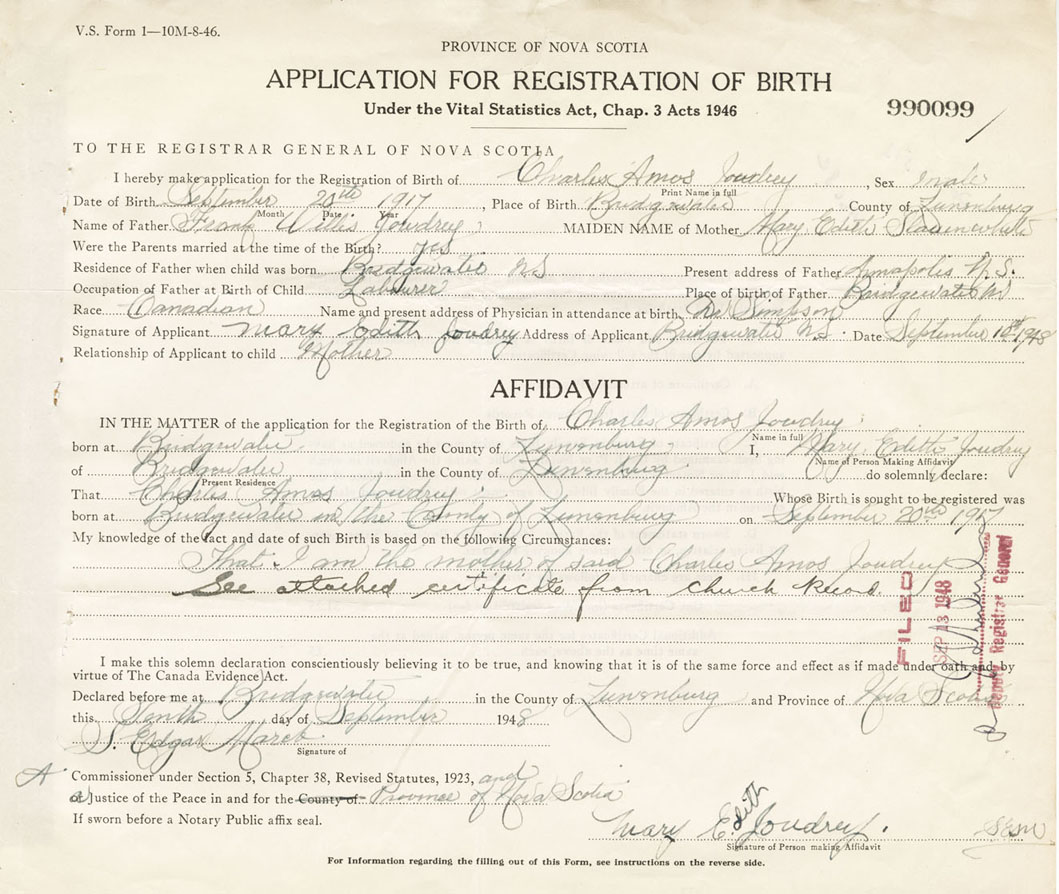 V.S. Form 1—10M-8-46.
PROVINCE OF NOVA SCOTIA
APPLICATION FOR REGISTRATION OF BIRTH
Under the Vital Statistics Act, Chap. 3 Acts 1946
990099
TO THE REGISTRAR GENERAL OF NOVA SCOTIA
I hereby make application for the Registration of Birth of Charles Amos Joudrey, Sex male
Print Name in full
Date of Birth September 20th 1917, Place of Birth Bridgewater County of Lunenburg
Month Date Year
Name of Father Frank Willis Joudrey MAIDEN NAME of Mother Mary Edith Slauenwhite
Were the Parents married at the time of the Birth? yes
Residence of Father when child was born Bridgewater NS Present address of Father Annapolis N.S.
Occupation of Father at Birth of Child Labourer Place of birth of Father Bridgewater NS
Race Canadian Name and present address of Physician in attendance at birth Dr Simpson
Signature of Applicant Mary Edith Joudrey Address of Applicant Bridgewater N.S. Date September 10th 1948
Relationship of Applicant to child Mother
AFFIDAVIT
IN THE MATTER of the application for the Registration of Birth of Charles Amos Joudrey
Name in full
born at Bridgewater in the County of Lunenburg I, Mary Edith Joudrey
Name of Person Making Affidavit
of Bridgewater in the County of Lunenburg do solemnly declare:
Present Residence
That Charles Amos Joudrey Whose Birth is sought to be registered was
born at Bridgewater in the County of Lunenburg on September 20th 1917
My knowledge of the fact and date of such Birth is based on the following Circumstances:
That I am the mother of said Charles Amos Joudrey
See attached certificate from Church Record.
FILED
SEP 13 1948
Deputy Registrar General
I make this solemn declaration conscientiously believing it to be true, and knowing that it is of the same force and effect as if made under oath and by
virtue of The Canada Evidence Act.
Declared before me at Bridgewater in the County of Lunenburg and Province of Nova Scotia
this Tenth day of September 1948
S. Edgar March
Signature of
A Commissioner under Section 5, Chapter 38, Revised Statutes, 1923, and
a Justice of the Peace in and for the County of Province of Nova Scotia
If sworn before a Notary Public affix seal.
Mary Edith Joudrey.
Signature of Person making Affidavit
For Information regarding the filling out of this Form, see instructions on the reverse side.